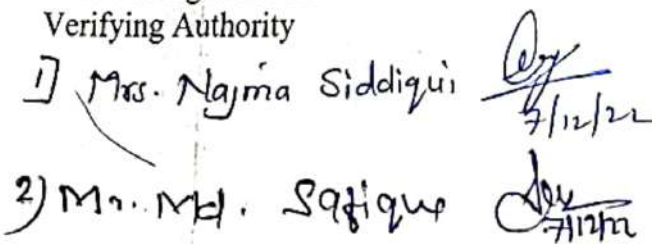 Verifying Authority
1] Mrs. Najma Siddiqui
7/12/22
2) Mr. Md. Safique
7/12/22